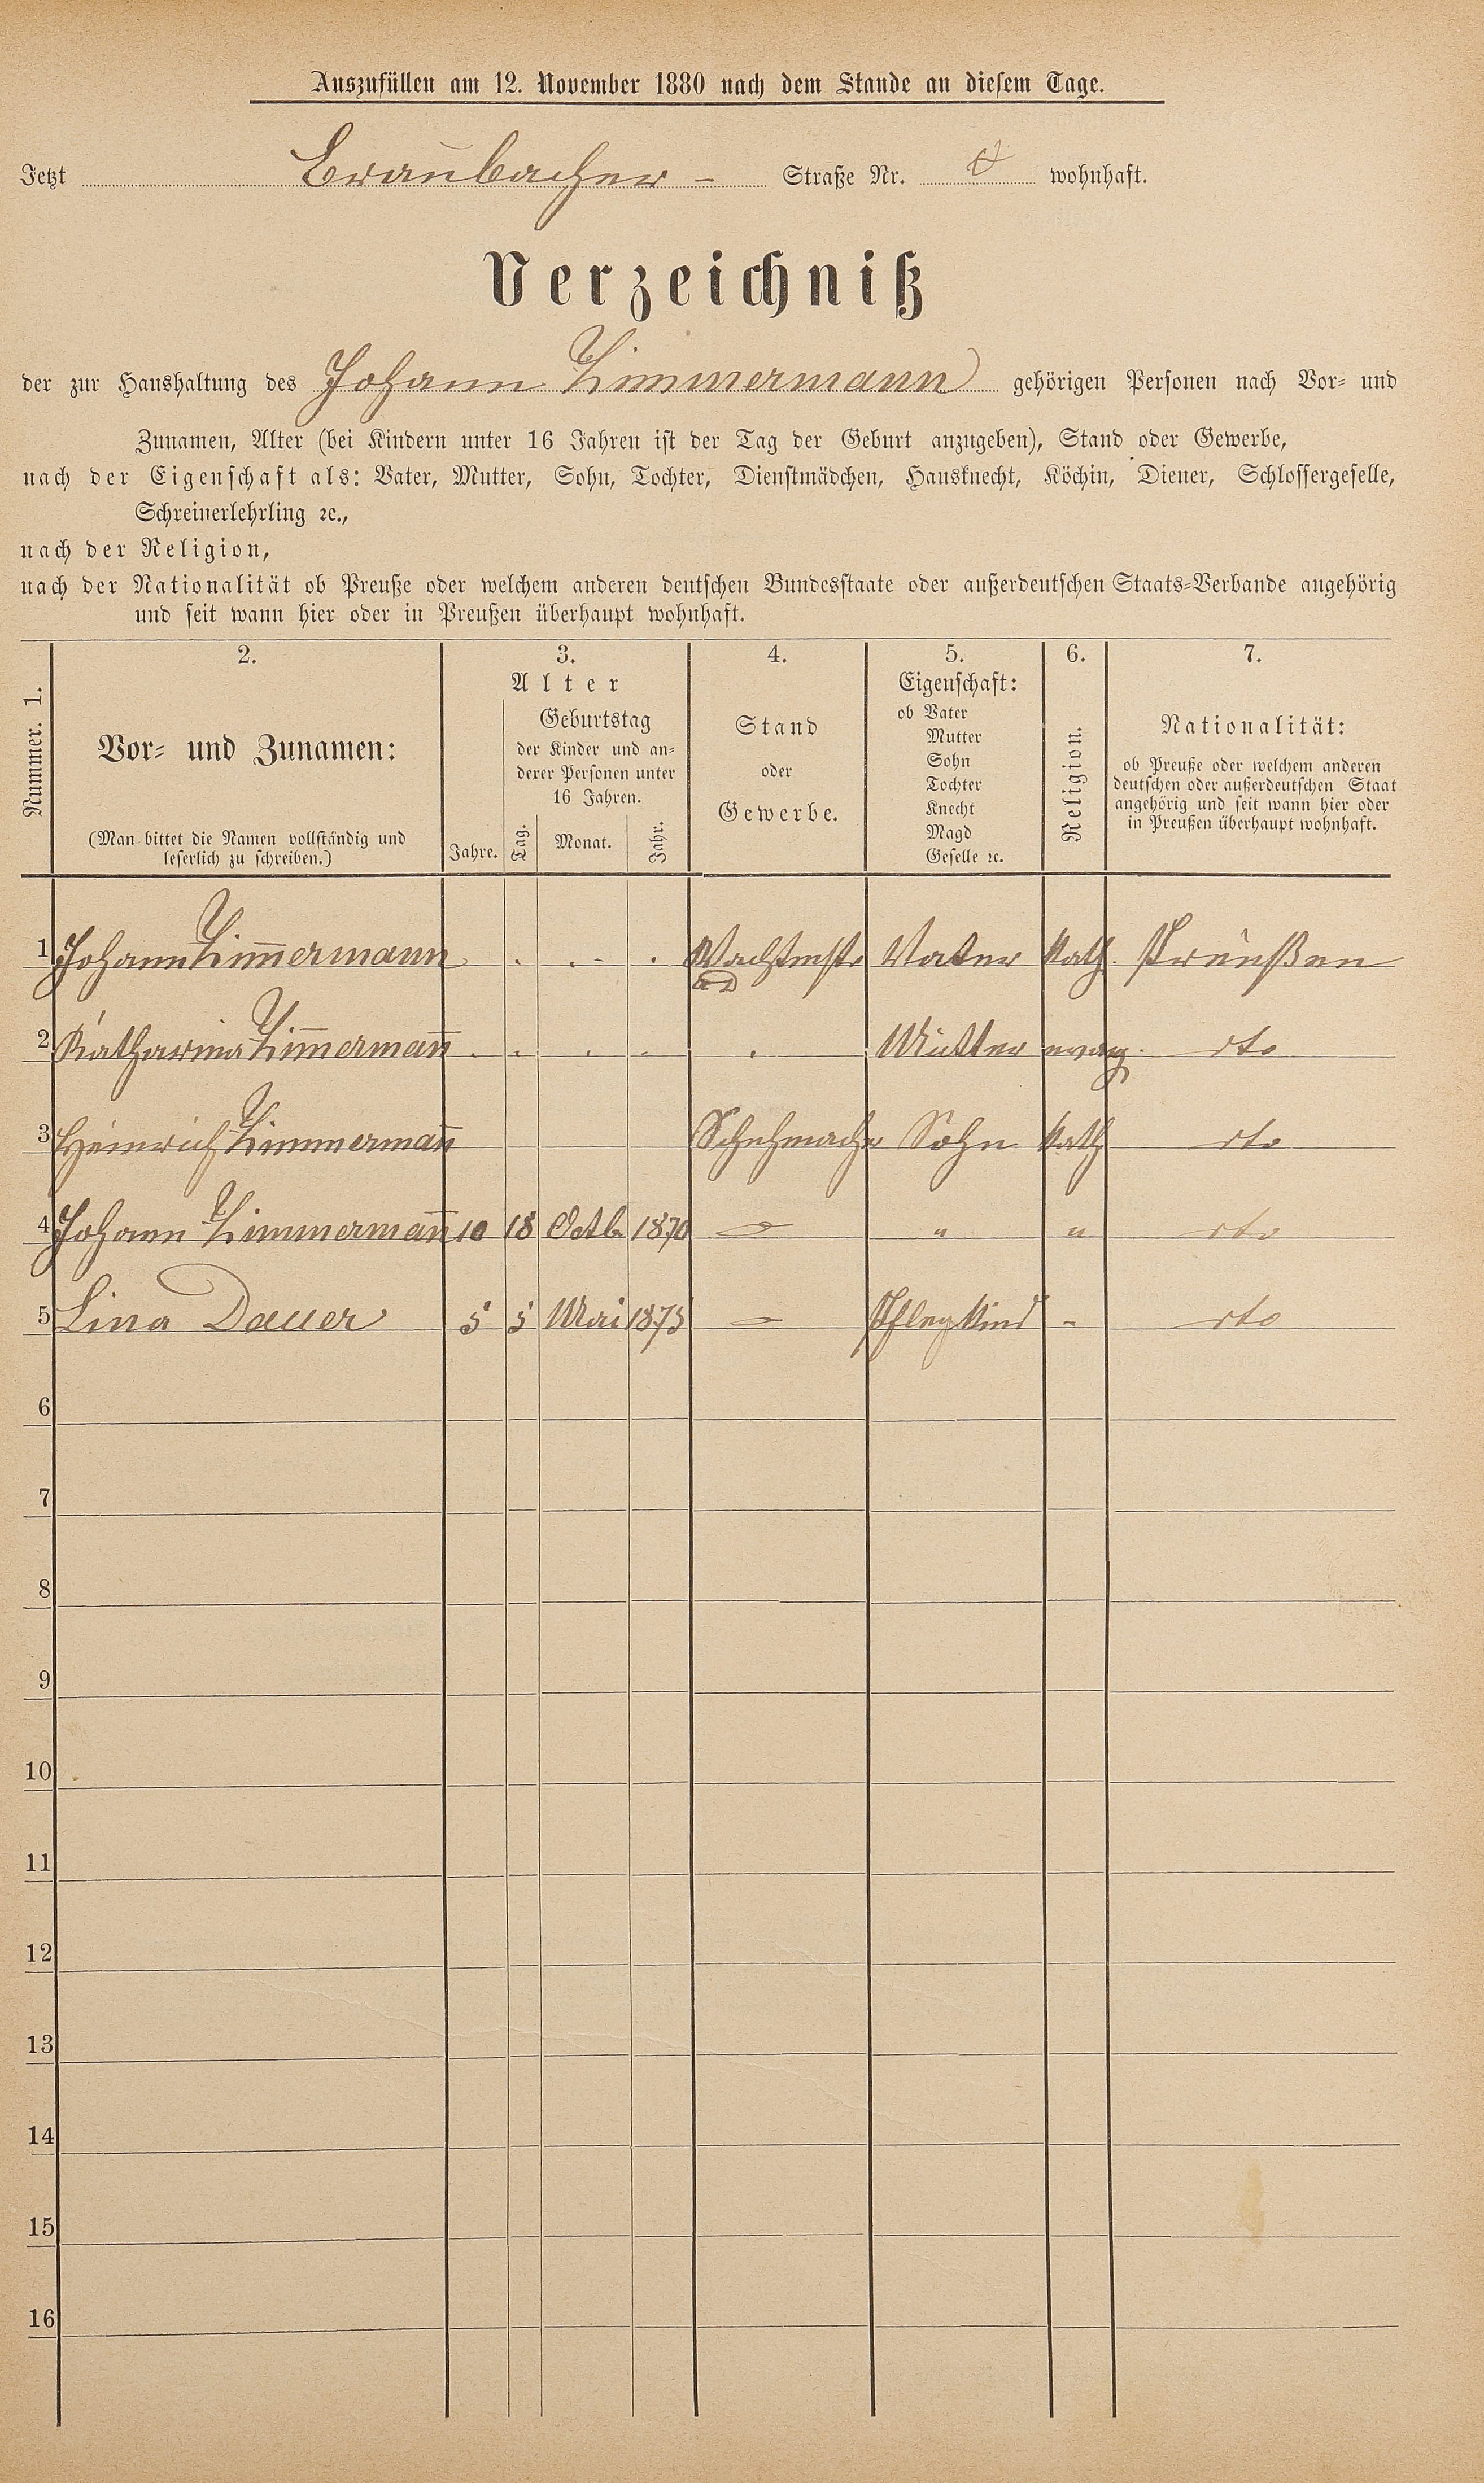 Auszufüllen am 12. November 1880 nach dem Stande an diesem Tage.
Jetzt Braubacher - Straße Nr. wohnhaft.
Verzeichniß
der zur Haushaltung des Johann Zimmermann gehörigen Personen nach Vor- und
Zunamen, Alter (bei Kindern unter 16 Jahren ist der Tag der Geburt anzugeben), Stand oder Gewerbe,
nach der Eigenschaft als: Vater, Mutter, Sohn, Tochter, Dienstmädchen, Hausknecht, Köchin, Diener, Schlossergeselle,
Schreinerlehrling ꝛc.,
nach der Religion,
nach der Nationalität ob Preuße oder welchem anderen deutschen Bundesstaate oder außerdeutschen Staats-Verbande angehörig
und seit wann hier oder in Preußen überhaupt wohnhaft.
Nummer. 1.
2.
Vor- und Zunamen:
(Man bittet die Namen vollständig und
leserlich zu schreiben.)
3.
Alter
Geburtstag
der Kinder und an-
derer Personen unter
16 Jahren.
Jahre. Tag. Monat. Jahr.
4.
Stand
oder
Gewerbe.
5.
Eigenschaft:
ob Vater
Mutter
Sohn
Tochter
Knecht
Magd
Geselle ꝛc.
6.
Religion.
7.
Nationalität:
ob Preuße oder welchem anderen
deutschen oder außerdeutschen Staat
angehörig und seit wann hier oder
in Preußen überhaupt wohnhaft.
1 Johann Zim̅ermann . . - . Wachtmstr Vater Kath. Preußen
aD
2 Katharina Zim̅erman̅ . . . . . Mutter evang. dto
3 Heinrich Zimmerman̅ Schuhmacher Sohn Kath dto
4 Johann Zimmerman̅ 10 18 Octb. 1870 — " " dto
5 Lina Dauer 5 5 Mai 1875 — Pfleg Kind - dto
6
7
8
9
10
11
12
13
14
15
16